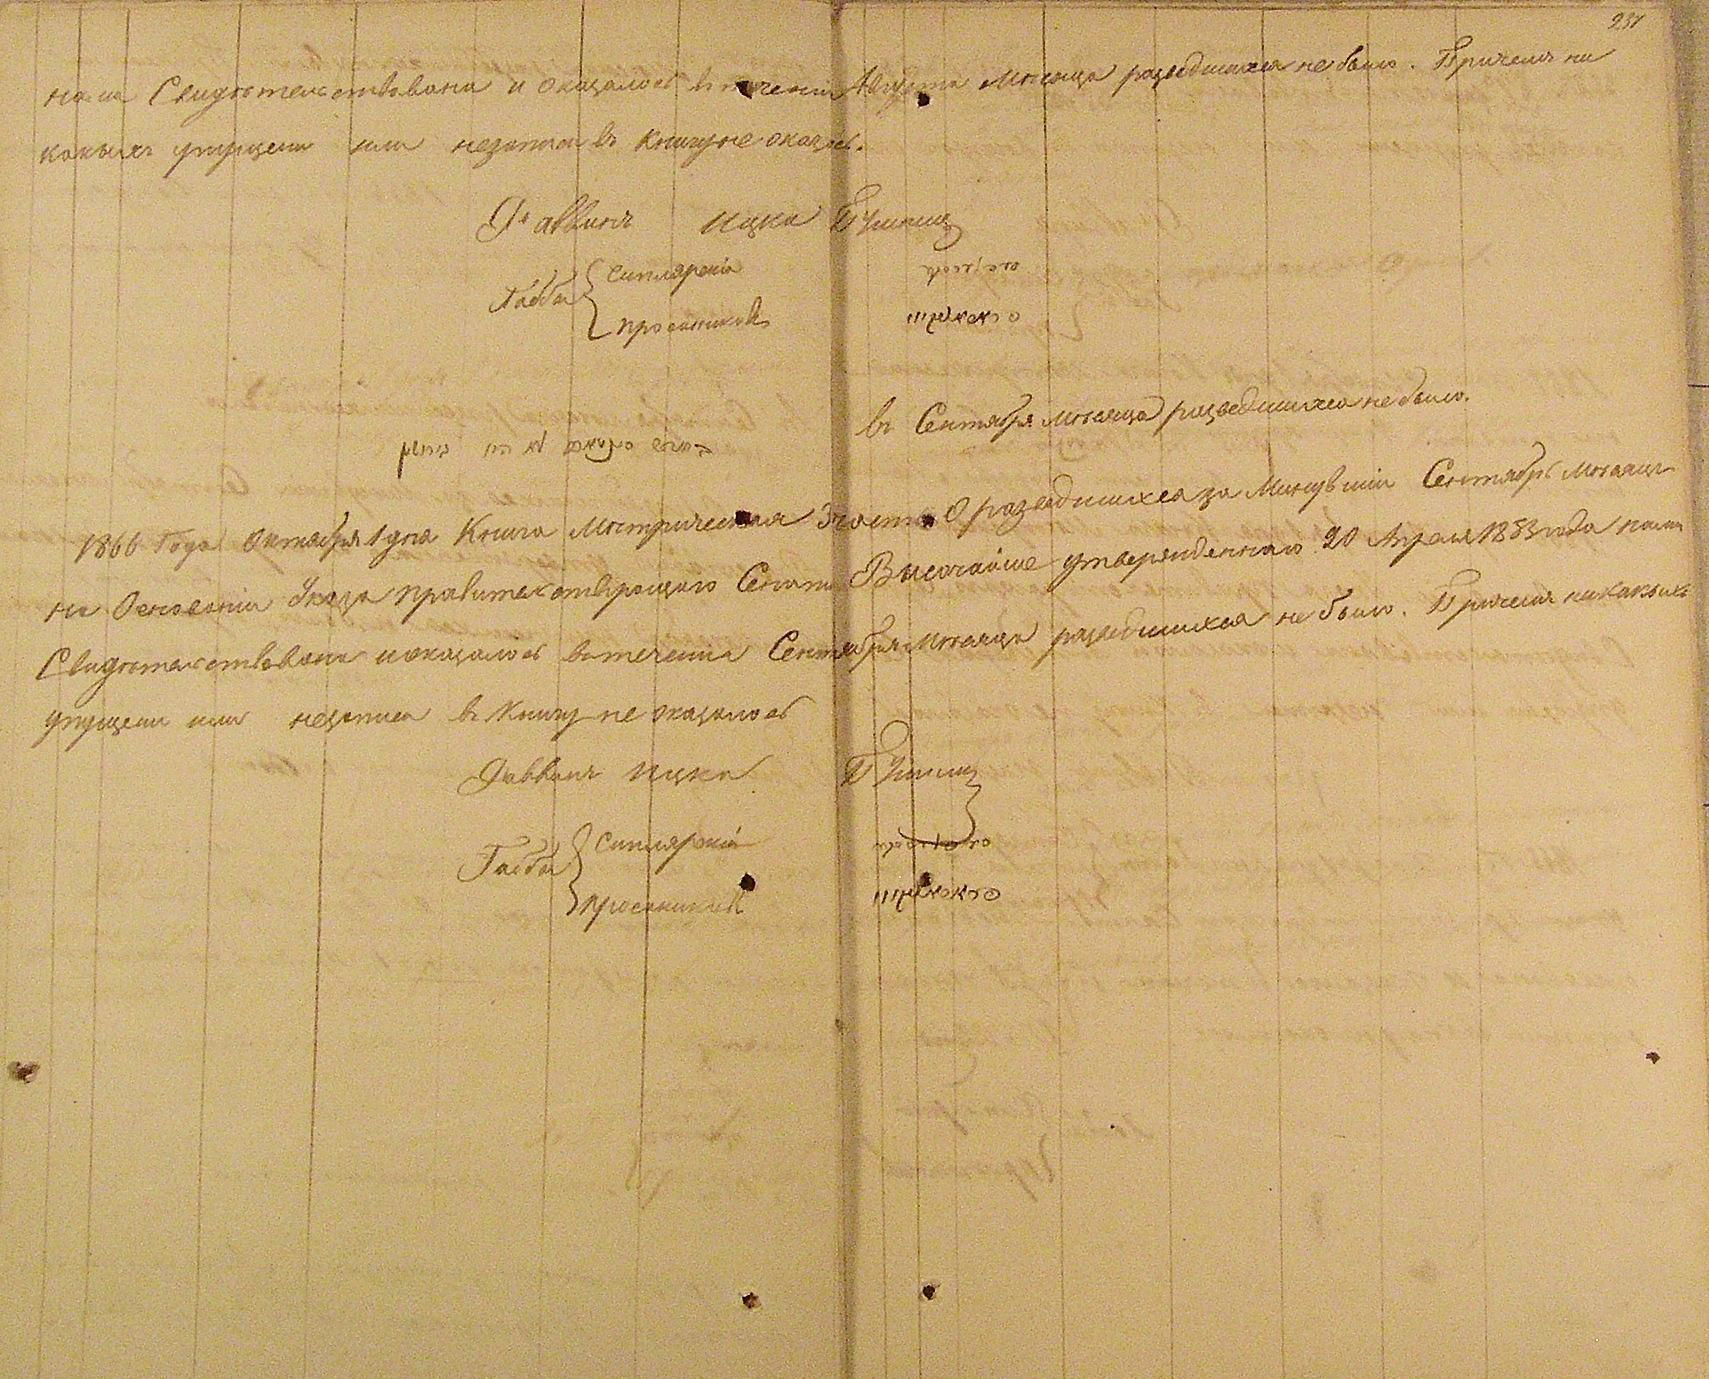 237
нами Свидетельствована и оказалось въ течении Августа Месяца разведшихся не было. Причемъ ни
какихъ упущени или незаписи въ Книгу не оказал.
Раввинъ Ицка
Габбаи
в Сентября месяца разведшихся не было.
1866 Года Октября 1 дня Книга Метрическая Часть О разведшихся за Минувшiи Сентябрь месяць
на Основанiи Указа правительствующаго Сената Высочайше утвержденнаго 20 Апреля 1853 года нами
Свидетельствована и оказалось в течении Сентября месяца разведшихся не было. Причемъ никакихъ
упущени или незаписи въ Книгу не оказалось
Раввинъ Ицка
Габбаи